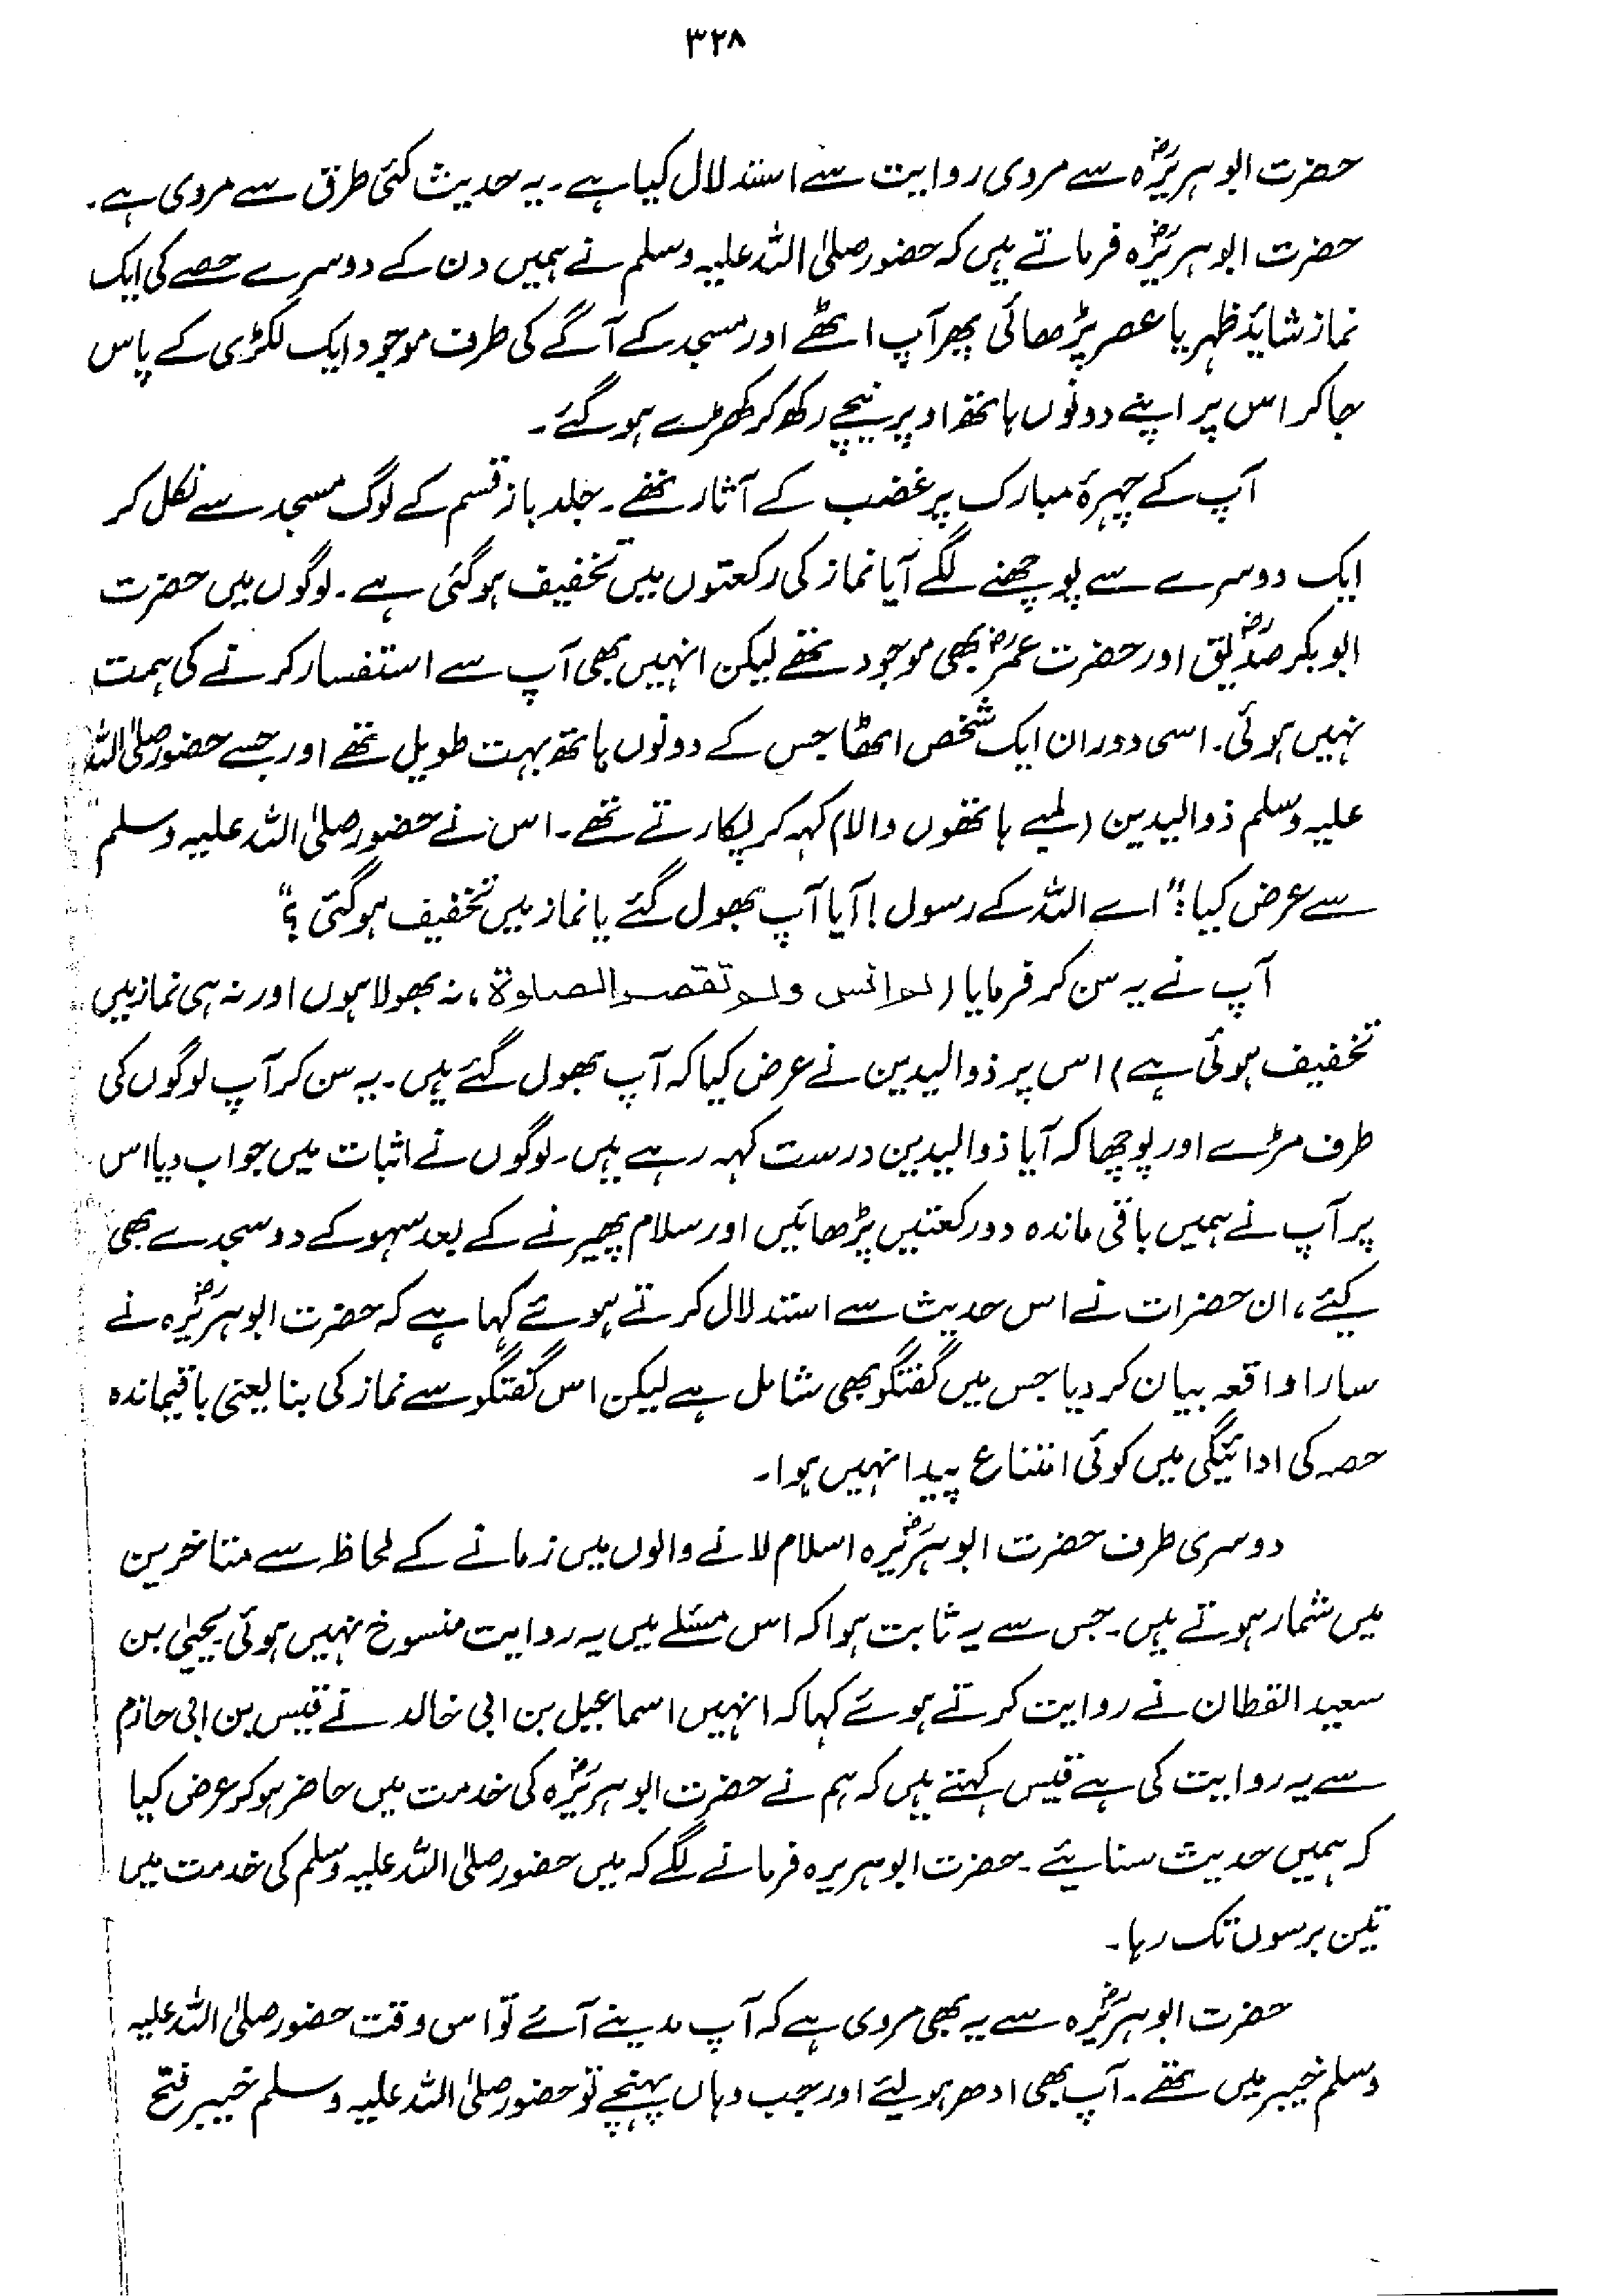 ۳۲۸
حضرت ابوہریرہؓ سے مروی روایت سے استدلال کیا ہے۔ یہ حدیث کئی طرق سے مروی ہے۔
حضرت ابوہریرہؓ فرماتے ہیں کہ حضور صلی اللہ علیہ وسلم نے ہمیں دن کے دوسرے حصے کی ایک
نماز شاید ظہر یا عصر پڑھائی پھر آپ اٹھے اور مسجد کے آگے کی طرف موجود ایک لکڑی کے پاس
جا کر اس پر اپنے دونوں ہاتھ اوپر نیچے رکھ کر کھڑے ہو گئے۔
آپ کے چہرۂ مبارک پر غضب کے آثار تھے۔ جلد باز قسم کے لوگ مسجد سے نکل کر
ایک دوسرے سے پوچھنے لگے آیا نماز کی رکعتوں میں تخفیف ہو گئی ہے۔ لوگوں میں حضرت
ابوبکر صدیقؓ اور حضرت عمرؓ بھی موجود تھے لیکن انہیں بھی آپ سے استفسار کرنے کی ہمت
نہیں ہوئی۔ اسی دوران ایک شخص اٹھا جس کے دونوں ہاتھ بہت طویل تھے اور جسے حضور صلی اللہ
علیہ وسلم ذوالیدین (لمبے ہاتھوں والا) کہہ کر پکارتے تھے۔ اس نے حضور صلی اللہ علیہ وسلم
سے عرض کیا: "اے اللہ کے رسول! آیا آپ بھول گئے یا نماز میں تخفیف ہو گئی؟"
آپ نے یہ سن کر فرمایا (لم انس ولم تقصر الصلوۃ، نہ بھولا ہوں اور نہ ہی نماز میں
تخفیف ہوئی ہے) اس پر ذوالیدین نے عرض کیا کہ آپ بھول گئے ہیں۔ یہ سن کر آپ لوگوں کی
طرف مڑے اور پوچھا کہ آیا ذوالیدین درست کہہ رہے ہیں۔ لوگوں نے اثبات میں جواب دیا اس
پر آپ نے ہمیں باقی ماندہ دو رکعتیں پڑھائیں اور سلام پھیرنے کے بعد سہو کے دو سجدے بھی
کیئے، ان حضرات نے اس حدیث سے استدلال کرتے ہوئے کہا ہے کہ حضرت ابوہریرہؓ نے
سارا واقعہ بیان کر دیا جس میں گفتگو بھی شامل ہے لیکن اس گفتگو سے نماز کی بنا یعنی باقیماندہ
حصہ کی ادائیگی میں کوئی امتناع پیدا نہیں ہوا۔
دوسری طرف حضرت ابوہریرہؓ اسلام لانے والوں میں زمانے کے لحاظ سے متاخرین
میں شمار ہوتے ہیں۔ جس سے یہ ثابت ہوا کہ اس مسئلے میں یہ روایت منسوخ نہیں ہوئی۔ یحییٰ بن
سعید القطان نے روایت کرتے ہوئے کہا کہ انہیں اسماعیل بن ابی خالد نے قیس بن ابی حازم
سے یہ روایت کی ہے قیس کہتے ہیں کہ ہم نے حضرت ابوہریرہؓ کی خدمت میں حاضر ہو کر عرض کیا
کہ ہمیں حدیث سنایئے۔ حضرت ابوہریرہ فرمانے لگے کہ میں حضور صلی اللہ علیہ وسلم کی خدمت میں
تین برسوں تک رہا۔
حضرت ابوہریرہؓ سے یہ بھی مروی ہے کہ آپ مدینے آئے تو اس وقت حضور صلی اللہ علیہ
وسلم خیبر میں تھے۔ آپ بھی ادھر ہو لیئے اور جب وہاں پہنچے تو حضور صلی اللہ علیہ وسلم خیبر فتح